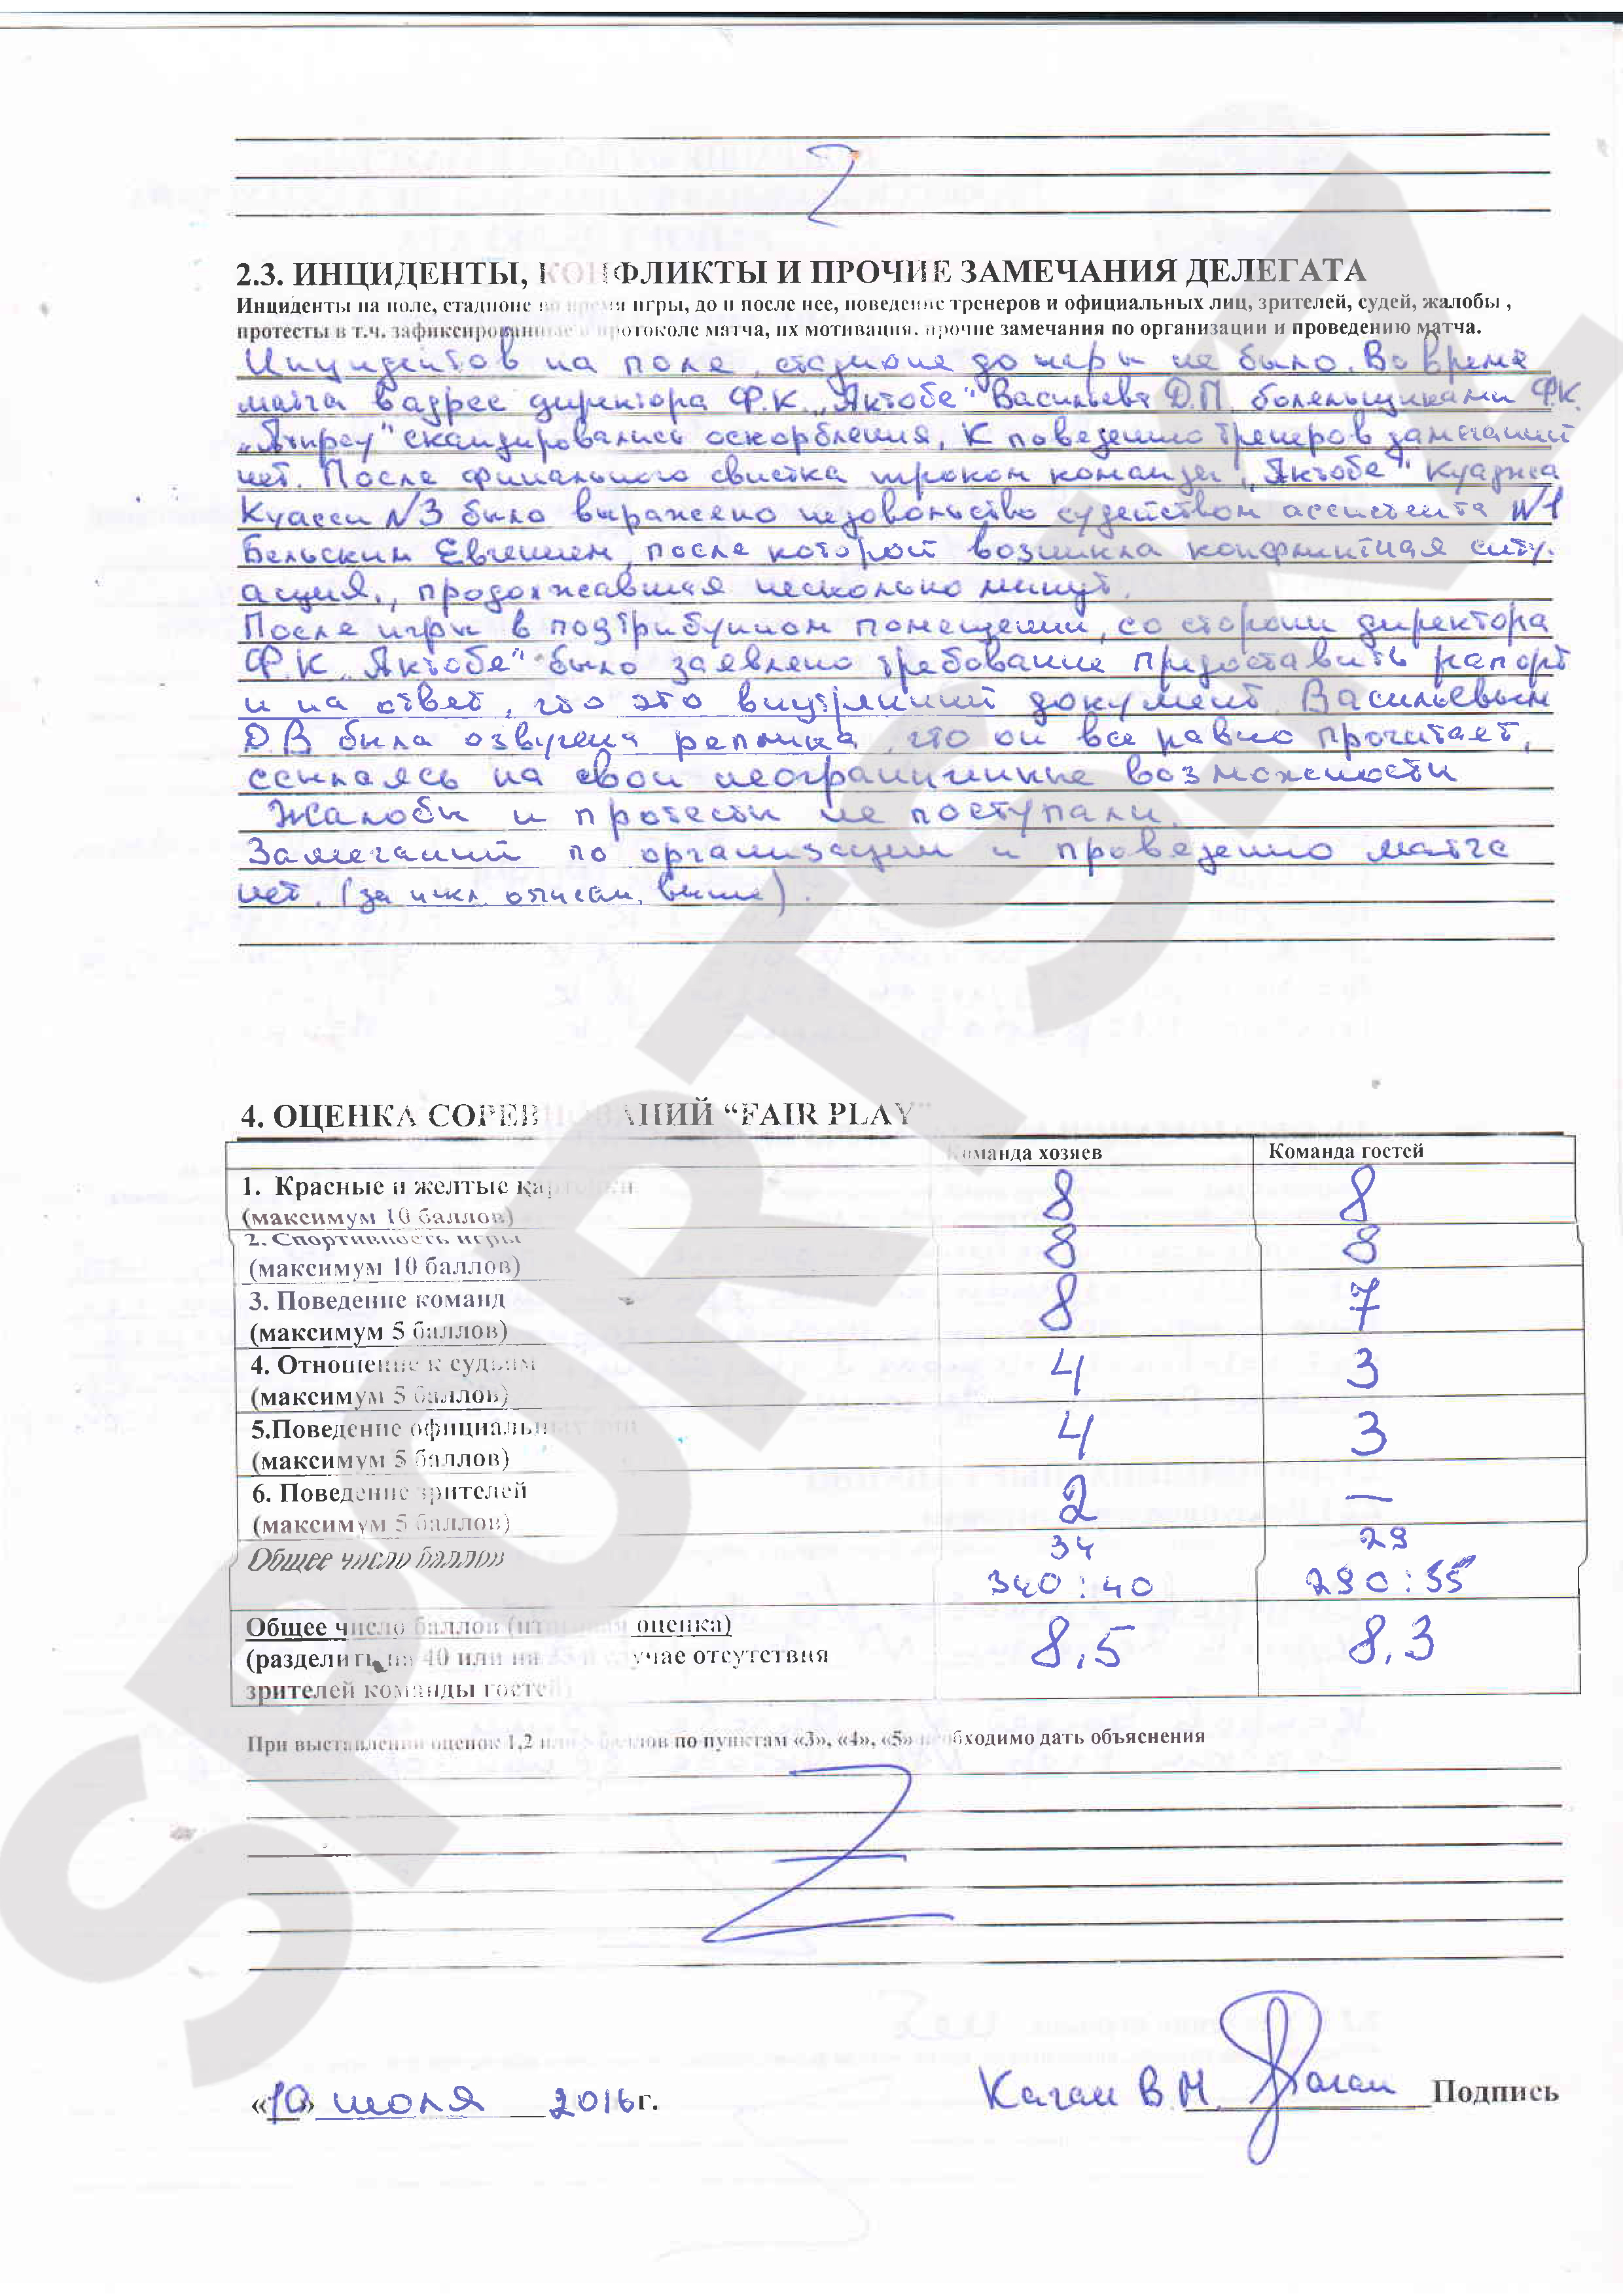 2.3. ИНЦИДЕНТЫ, КОНФЛИКТЫ И ПРОЧИЕ ЗАМЕЧАНИЯ ДЕЛЕГАТА
Инциденты на поле, стадионе во время игры, до и после нее, поведение тренеров и официальных лиц, зрителей, судей, жалобы ,
протесты в т.ч. зафиксированные в протоколе матча, их мотивация, прочие замечания по организации и проведению матча.
Инцидентов на поле, стадионе до игры не было. Во время
матча в адрес директора Ф.К. „Актобе" Васильева Д.П. болельщиками Ф.К.
„Атырау" скандировались оскорбления. К поведению тренеров замечаний
нет. После финального свистка игроком команды „Актобе"
№3 было выражено недовольство судейством ассистента №1
Бельским Евгением, после которой возникла конфликтная ситу-
ация., продолжавшая несколько минут.
После игры в подтрибунном помещении, со стороны директора
Ф.К „Актобе" было заявлено требование предоставить рапорт
и на ответ, что это внутренний документ. Васильевым
Д.В была озвучена реплика, что он все равно прочитает,
ссылаясь на свои неограниченные возможности
Жалобы и протесты не поступали.
Замечаний по организации и проведению матча
нет. (за искл. описан. выше).
4. ОЦЕНКА СОРЕВНОВАНИЙ “FAIR PLAY”
Команда хозяев Команда гостей
1. Красные и желтые карточки
(максимум 10 баллов) 8 8
2. Спортивность игры
(максимум 10 баллов) 8 8
3. Поведение команд
(максимум 5 баллов) 8 7
4. Отношение к судьям
(максимум 5 баллов) 4 3
5.Поведение официальных лиц
(максимум 5 баллов) 4 3
6. Поведение зрителей
(максимум 5 баллов) 2 —
Общее число баллов 34 29
340:40 290:35
Общее число баллов (итоговая оценка) 8,5 8,3
(разделить на 40 или на в случае отсутствия
зрителей команды гостей)
При выставлении оценок 1,2 или баллов по пунктам «3», «4», «5» необходимо дать объяснения
«10» июля 2016г. Каган В.М. Каган Подпись
SPORTS.KZ